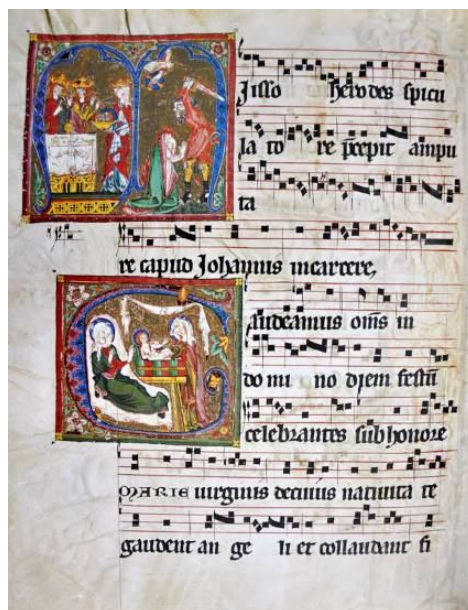 isso herodes spicu
la to re p̄cepit ampu
ta
re capud Johannis incarcere,
audeamus om̄s in
do mi no diem festū
celebrantes sub honore
MARIE uirginis decuius natiuita te
gaudent an ge li et collaudant fi